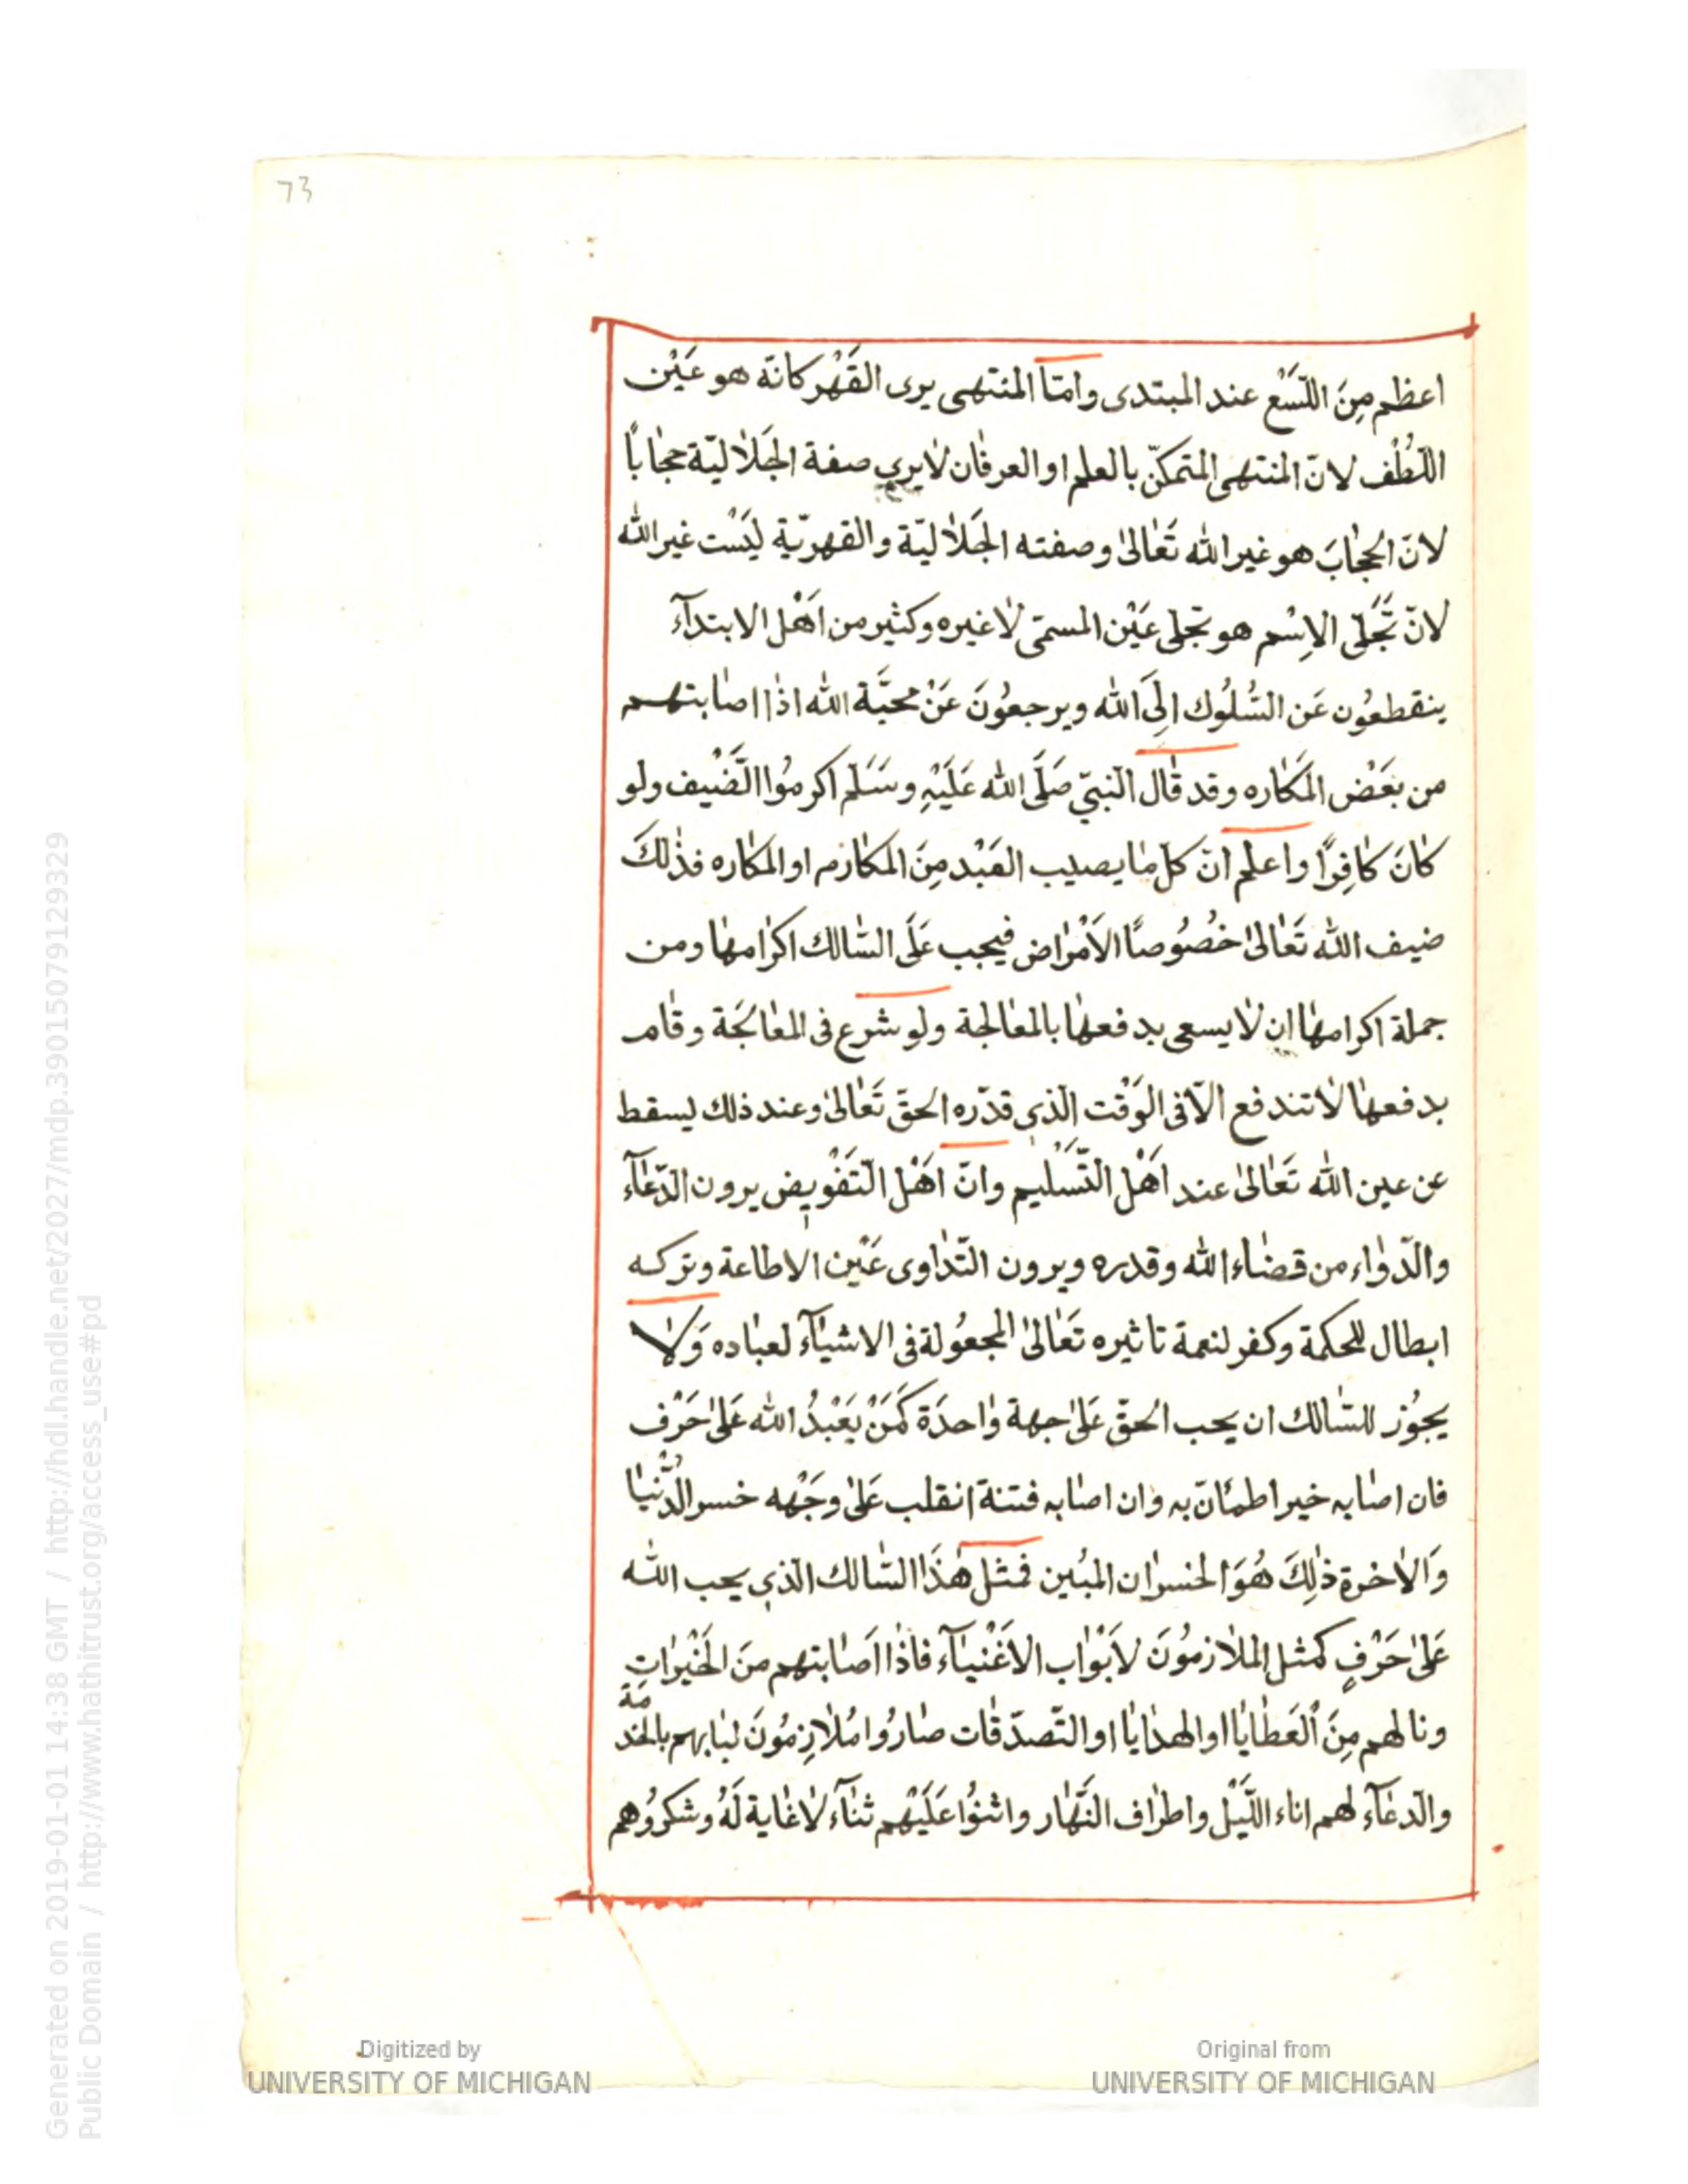 73
اعظم مِنَ اللّسَع عند المبتدى وامّا المنتهى يرى القَهْر كانّه هو عَيْن
اللّطُف لانّ المنتهى المتمكّن بالعلم او العرفان لا يرى صفة الجَلاليّة حجاباً
لانّ الحجابَ هو غير الله تَعَالىٰ وصفته الجَلاليّة والقهريّة ليَسْت غير الله
لانّ تَجَلّى الاِسْم هو تجلى عَيْن المسمّى لا غيره وكثير من اَهْل الابتدآء
ينقطعُون عَن السُّلُوك اِلَى الله ويرجعُونَ عَنْ محبَّة الله اذا اصابتهم
من بعَض المكَاره وقد قال النبىّ صَلَّى الله عَلَيْهِ وسَلَم اكرمُوا الضَّيف ولو
كانَ كافِرًا واعلم انّ كل ما يصيب العَبْد مِنَ المكارم او المكاره فذلكَ
ضيف الله تَعَالىٰ خُصُوصًا الاَمْراض فيجب عَلَى السّالك اكرامها ومن
جملة اكرامها ان لا يسعى بدفعها بالمعالجة ولو شرع فى المعالجَة وقام
بدفعها لا تندفع الّا فى الوَقْت الّذى قدّره الحقّ تَعَالىٰ وعند ذلك ليسقط
عن عين الله تَعَالىٰ عند اَهْل التَّسْليم وانّ اَهْل التَفْويض يرون الدّعآء
والدّواء من قضاء الله وقدره ويرون التّداوى عَيْن الاطاعة وتركه
ابطال للحكمة وكفر لنعمة تاثيره تَعَالىٰ المجعُولة فى الاشيآء لعباده وَلا
يجُوز للسّالك ان يحب الحقّ عَلىٰ جهة واحدَة كَمَنْ يَعْبدُ الله عَلىٰ حَرْف
فان اصابه خير اطمئانّ به وان اصابه فتنة انقلب عَلىٰ وجَهْه خسر الدُّنْيا
وَالاخرة ذٰلِكَ هُوَ الخسران المبُين فمثل هٰذا السّالك الّذى يحب الله
عَلىٰ حَرْفٍ كمثل الملازمُونَ لاَبْواب الاَغْنيآء فاذا اَصابتهم منَ الخَيْراتِ
ونالهم مِنَ العَطايا او الهدايا او التّصدّقات صارُوا مُلازِمُونَ لبابهم بالخدمة
والدعآء لهم اناء اللّيْل واطراف النَّهار واثنوُا عَلَيْهم ثنآء لا غاية لَهُ وشكرُوهم
Generated on 2019-01-01 14:38 GMT / http://hdl.handle.net/2027/mdp.39015079129329
Public Domain / http://www.hathitrust.org/access_use#pd
Digitized by
UNIVERSITY OF MICHIGAN
Original from
UNIVERSITY OF MICHIGAN